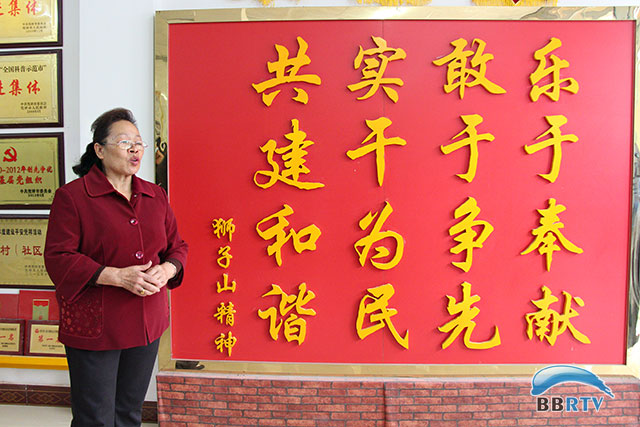 乐于奉献
敢于争先
实干为民
共建和谐
狮子山精神
进集体
"全国科普示范市"
进集体
-2012年创先争优
基层党组织
村（社区
一名
第一
BBRTV